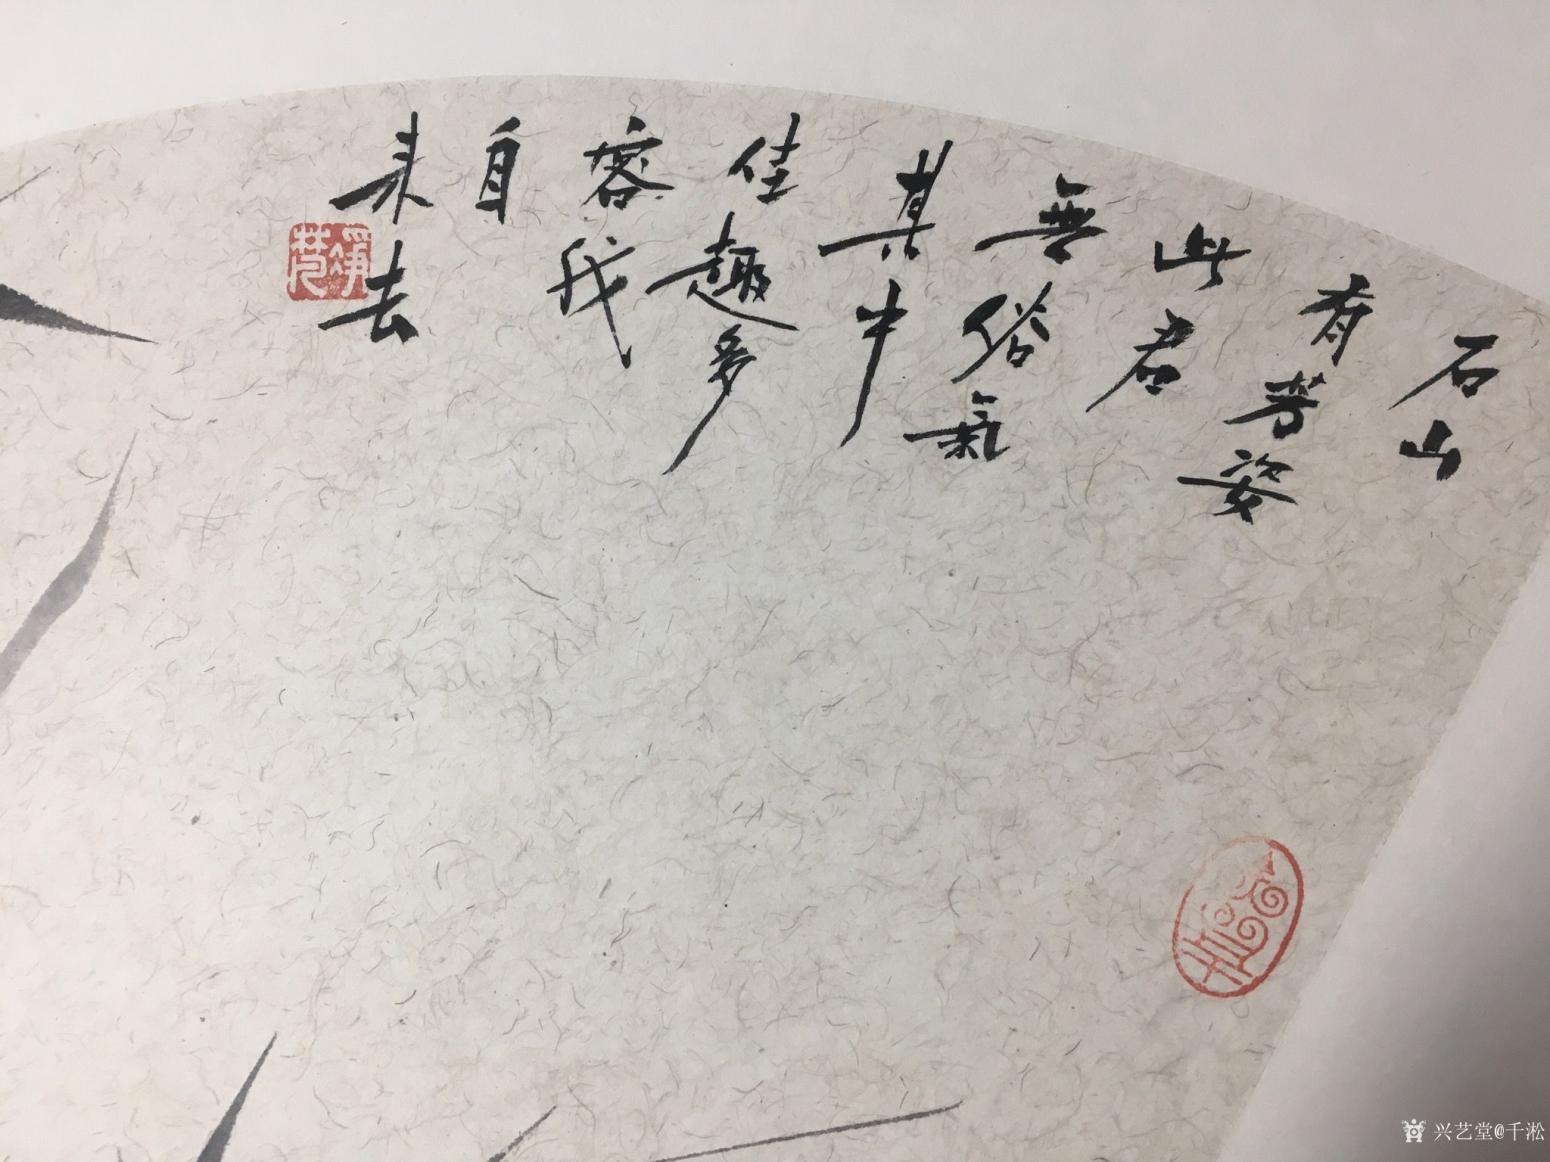 石山
有芳姿
此君
無俗氣
其中
佳趣多
容我
自
来去
兴艺堂@千淞